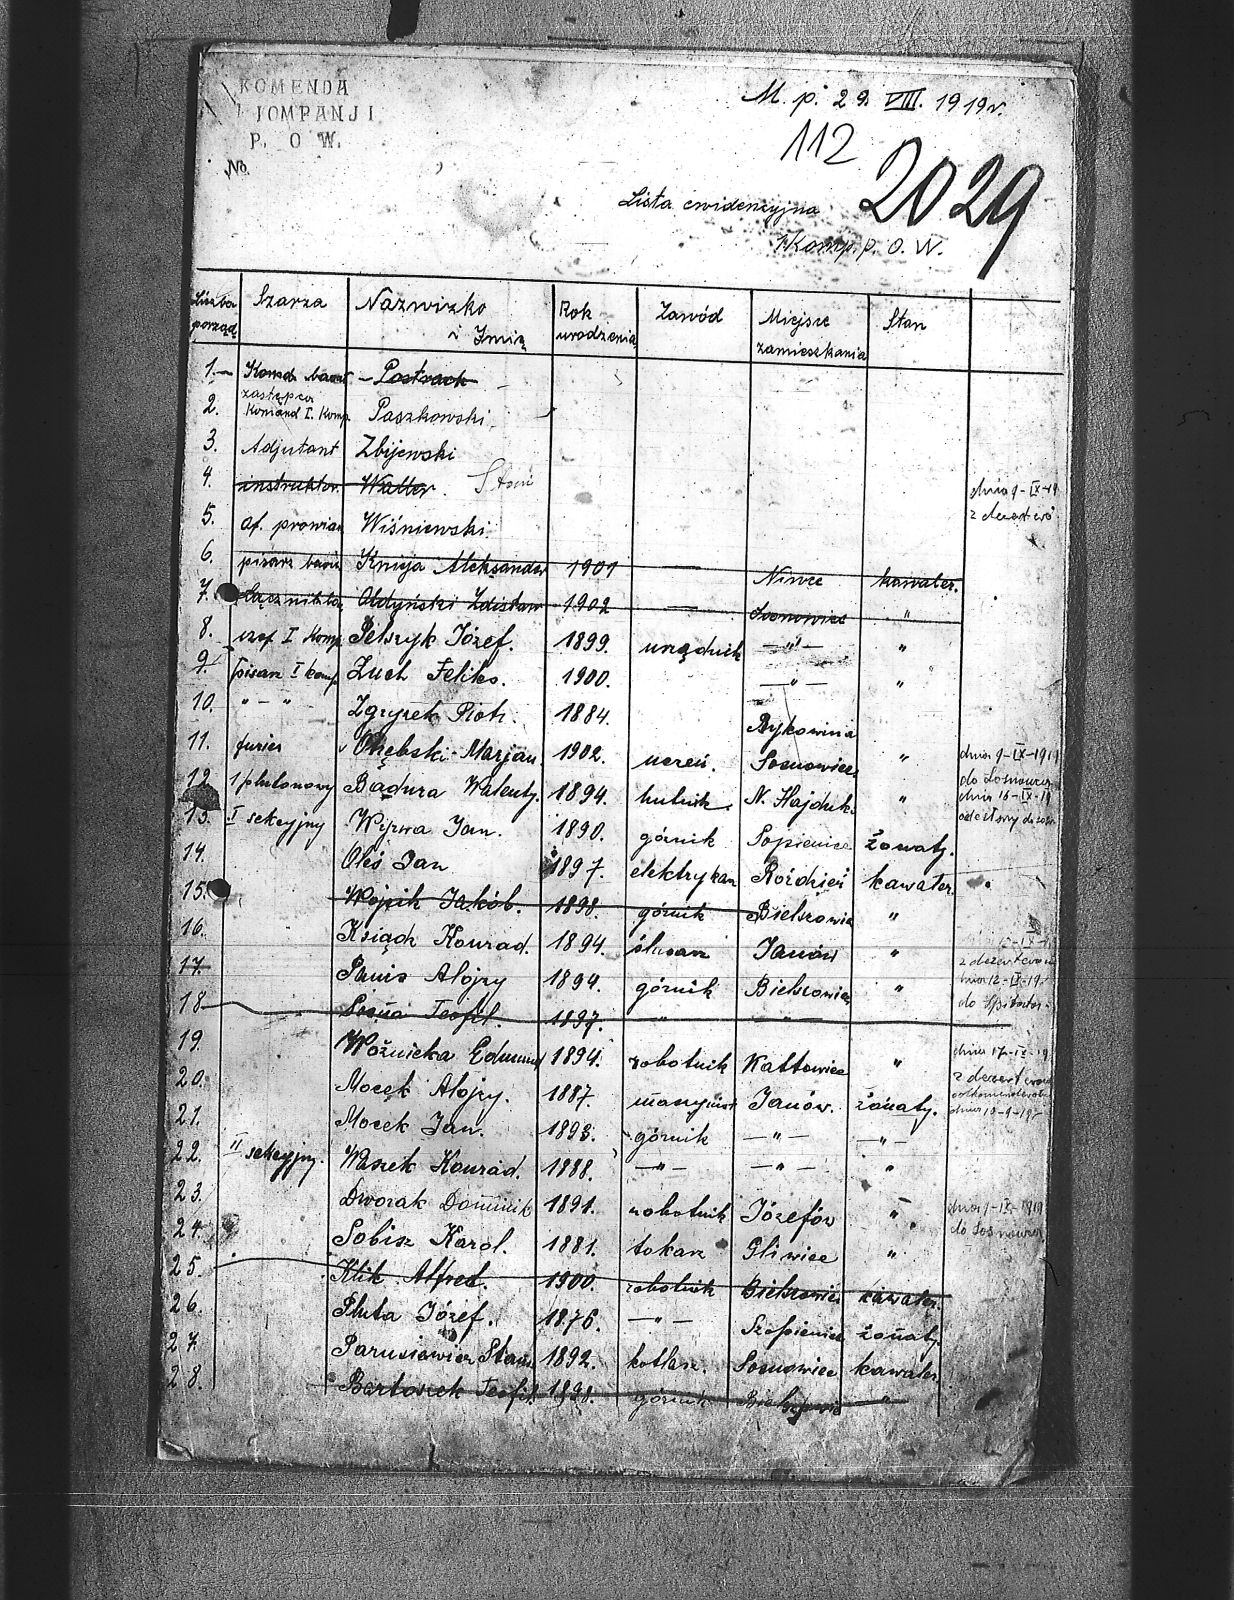 KOMENDA
KOMPANJI
P. O W.
No.
M. p. 29. VIII. 1919r.
112
2029
Lista ewidencyjna
I Komp. P. O. W.
Liczba porząd. Szarża Nazwisko i Imię Rok urodzenia Zawód Miejsce zamieszkania Stan
1. Komd. baonu Postrach
2. zastępca Komand I. Komp. Paszkowski
3. Adjutant Zbijewski
4. instruktor Walter.
dnia 9-IX-19
z
5. of. prowian Wiśniewski
6. pisarz baonu Knieja Aleksander 1901 — Niwce kawaler.
7. Łącznik Ołdyński Zdzisław 1902 — Sosnowiec "
8. szef I Komp Pełszyk Józef. 1899. urzędnik — " — "
9. pisarz I komp. Zuch Feliks. 1900. — " — "
10. " — " Zgrzek Piotr. 1884. Bykowina
11. furier Chębski Marjan 1902. uczeń. Sosnowiec "
dnia 9-IX-1919
do Sosnowca
12. 1 plutonowy Badura Walenty. 1894. hutnik N. Hajduk. "
dnia 16-IX-19
13. I sekcyjny Wipwa Jan. 1890. górnik Sopienice żonaty.
14. Oleś Jan 1897. elektrykarz Roździeń kawaler
15. Wójcik Jakób. 1898. górnik Bielszowice "
16. Ksiądz Konrad. 1894 ślusarz Janów "
z dezerterował
17. Panis Alojzy 1894. górnik Bielszowice "
dnia 12-IX-19.
do Szpitala
18. Sosna Teofil. 1897. " — " —
19. Woźnicka Edmund 1894. robotnik Kattowice "
dnia 17-IX-19
z dezerterował
20. Mocek Alojzy. 1887. maszynist Janów. żonaty.
21. Mocek Jan. 1893. górnik — " — — " —
22. II sekcyjny. Waszek Konrad. 1888. — " — — " — "
23. Dworak Dominik 1891. robotnik Józefów "
dnia 1-IX-1919
do Sosnowca
24. Sobisz Karol. 1881. tokarz Gliwice "
25. Klik Alfred. 1900. robotnik Bielszowice kawaler.
26. Pluta Józef. 1876. — " — Szopienice żonaty.
27. Parusiewicz Stan. 1892. kotlarz. Sosnowiec kawaler
28. Bartoszek Teofil. 1898. górnik Bielszowice "